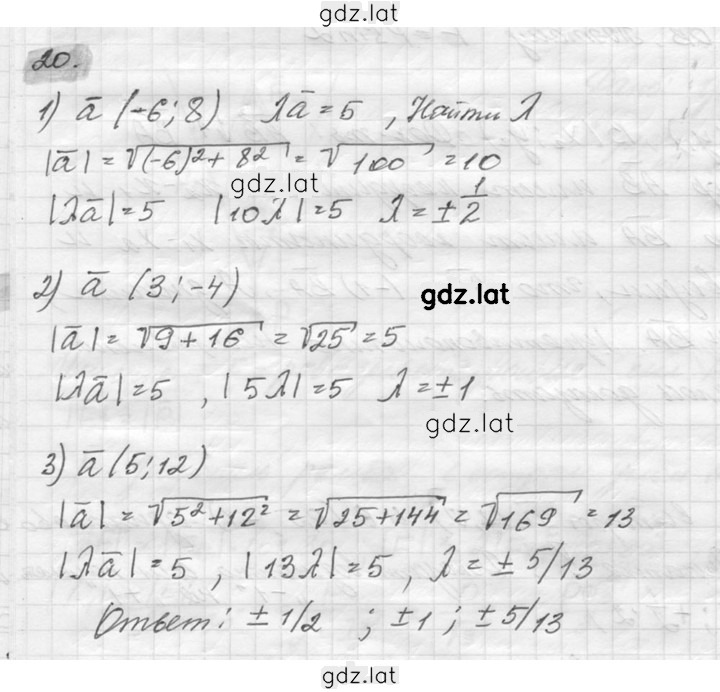 gdz.lat
20.
1) a̅ (-6; 8) λa̅ = 5 , Найти λ
|a̅| = √(-6)² + 8² = √100 = 10
gdz.lat
|λa̅| = 5 |10λ| = 5 λ = ± 1/2
2) a̅ (3; -4)
gdz.lat
|a̅| = √9 + 16 = √25 = 5
|λa̅| = 5 , |5λ| = 5 λ = ± 1
gdz.lat
3) a̅ (5; 12)
|a̅| = √5² + 12² = √25 + 144 = √169 = 13
|λa̅| = 5 , |13λ| = 5 , λ = ± 5/13
Ответ: ± 1/2 ; ± 1 ; ± 5/13
gdz.lat